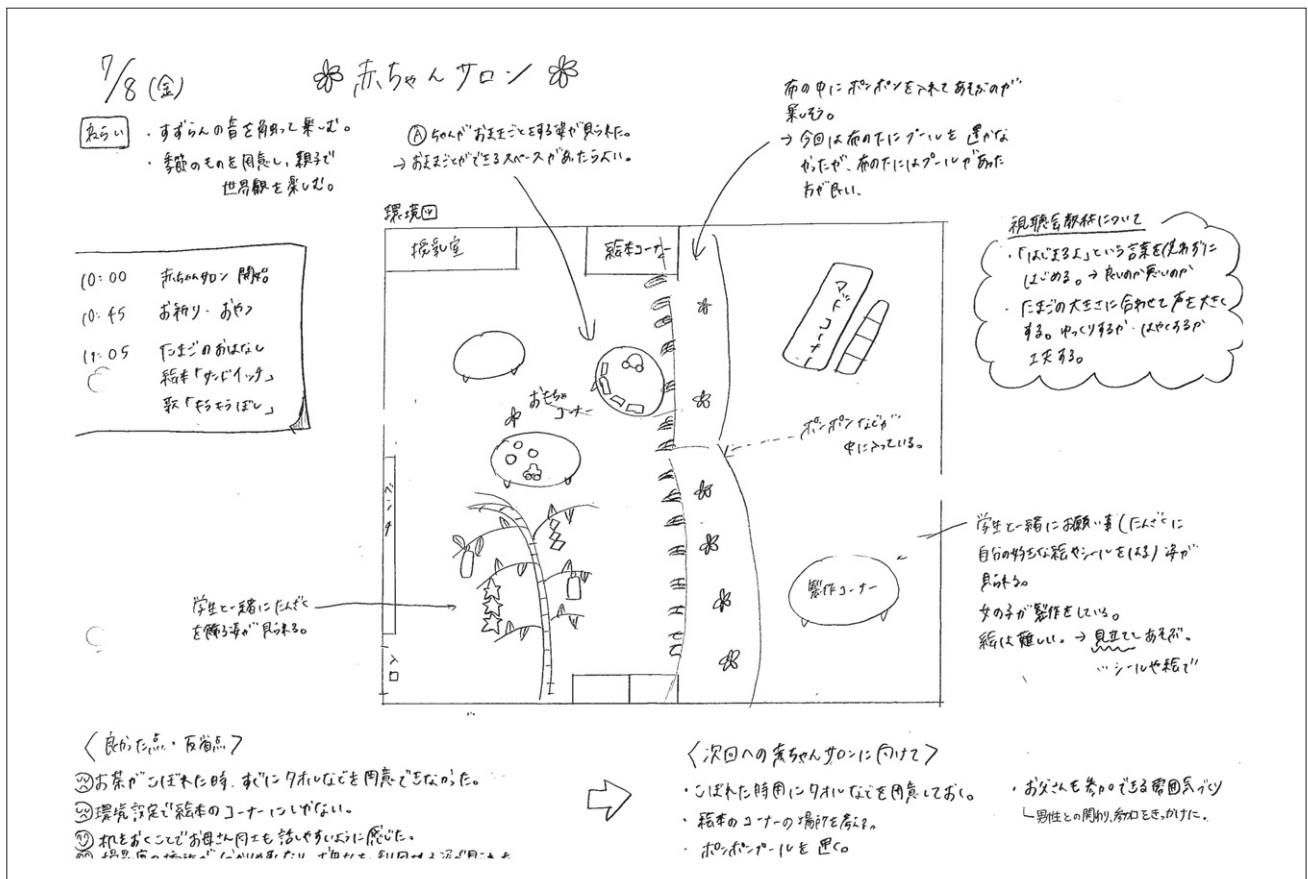 7/8(金)
赤ちゃんサロン
ねらい
・すずらんの音を触って楽しむ。
・季節のものを用意し、親子で
世界観を楽しむ。
Ⓐちゃんがおままごとをする姿が見られた。
→おままごとができるスペースがあったらよい。
布の中にポンポンを入れてあそぶのが
楽しそう。
→今回は布の下にプールを置かな
かったが、布の下にはプールがあった
方が良い。
環境図
授乳室
絵本コーナー
マットコーナー
おもちゃ
コーナー
ポンポンなどが
中に入っている。
ベンチ
入口
製作コーナー
10:00 赤ちゃんサロン 開始
10:45 お祈り・おやつ
11:05 たまごのおはなし
絵本「サンドイッチ」
歌「きらきらぼし」
視聴覚教材について
・「はじまるよ」という言葉を使わずに
はじめる。→良いのか悪いのか
・たまごの大きさに合わせて声を大きく
する。ゆっくりするか・はやくするか
工夫する。
学生と一緒にたんざく
を飾る姿が見られる。
学生と一緒にお願い事(たんざくに
自分の好きな絵やシールをはる)姿が
見られる。
女の子が製作をしている。
絵は難しい。→見立ててあそぶ。
シールや絵で
〈良かった点・反省点〉
お茶がこぼれた時、すぐにタオルなどを用意できなかった。
環境設定で絵本のコーナーにしかない。
机をおくことでお母さん同士も話しやすいように感じた。
〈次回への赤ちゃんサロンに向けて〉
・こぼれた時用にタオルなどを用意しておく。
・絵本のコーナーの場所を考える。
・ポンポンプールを置く。
・お父さんも参加できる雰囲気づくり
└男性との関わり、参加をきっかけに。